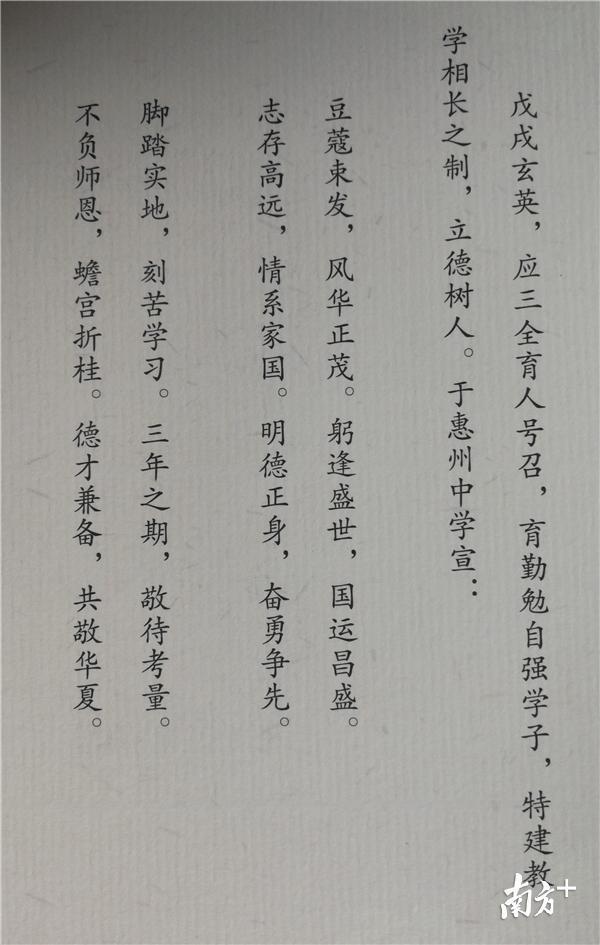 戊戌玄英，应三全育人号召，育勤勉自强学子，特建教
学相长之制，立德树人。于惠州中学宣：
豆蔻束发，风华正茂。躬逢盛世，国运昌盛。
志存高远，情系家国。明德正身，奋勇争先。
脚踏实地，刻苦学习。三年之期，敬待考量。
不负师恩，蟾宫折桂。德才兼备，共敬华夏。
南方+